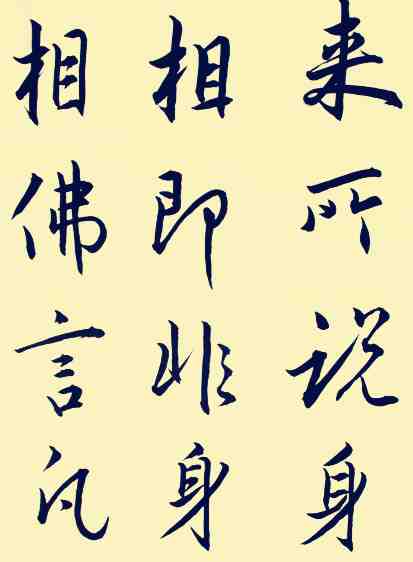 来所说身
相即非身
相佛言凡